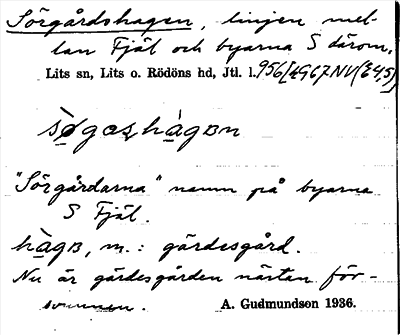 Sörgårdshagen, linjen mel-
lan Fjäl och byarna S därom.
Lits sn, Lits o. Rödöns hd, Jtl. l.
"Sörgårdarna" namn på byarna
S Fjäl.
m.: gärdesgård.
Nu är gärdesgården nästan för-
svunnen. A. Gudmundson 1936.